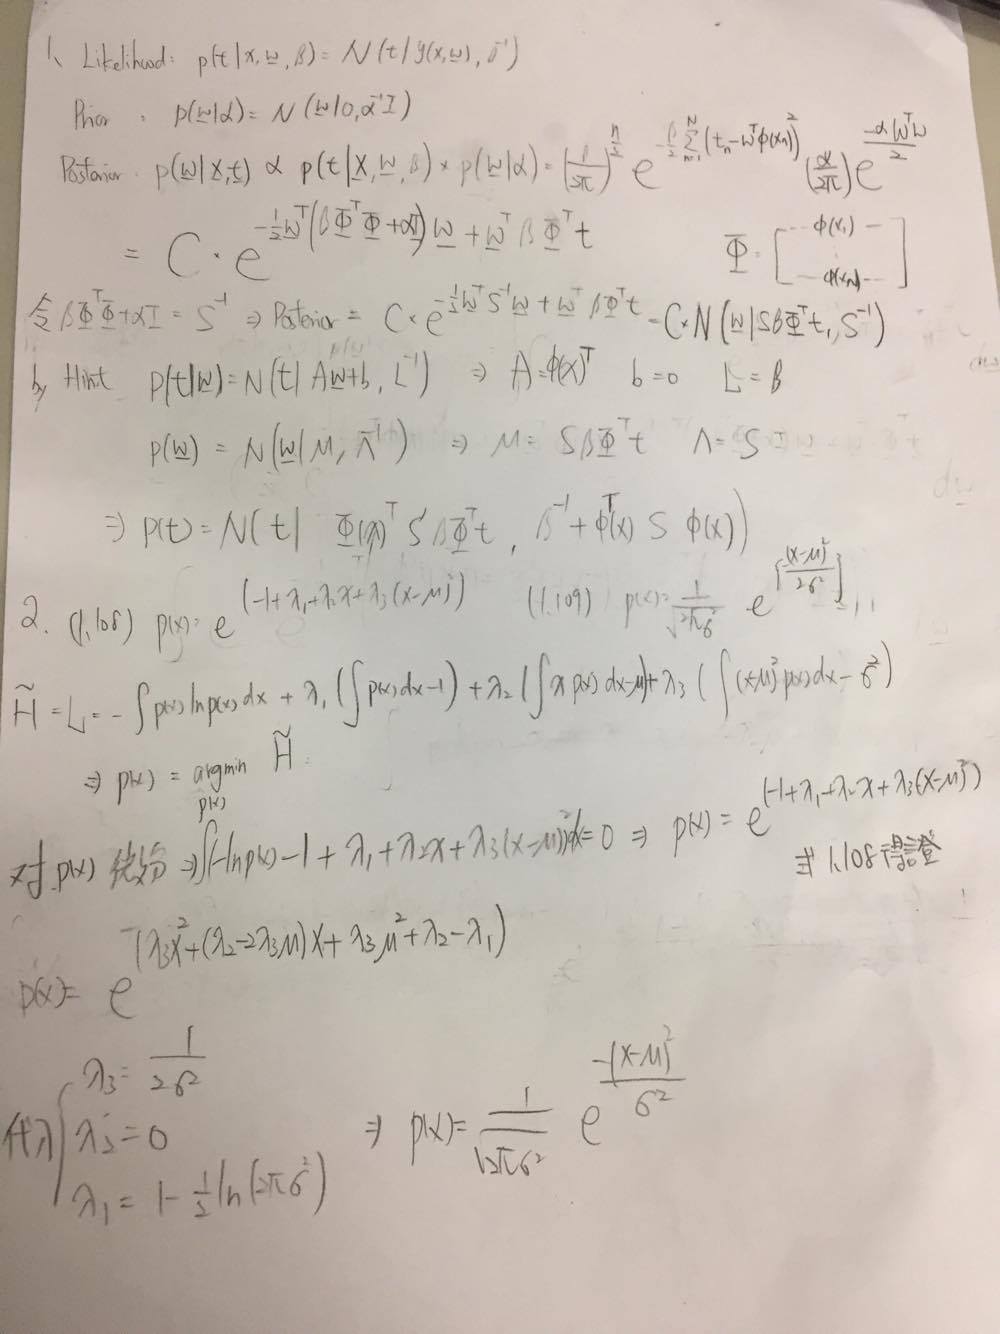 1、 Likelihood: p(t|x, w, β) = N(t|y(x,w), β⁻¹)
Prior: p(w|α) = N(w|0, α⁻¹I)
Posterior: p(w|x,t) ∝ p(t|x,w,β) × p(w|α) = (β/2π)^(n/2) e^(-β/2 Σ_{n=1}^{N} (t_n - wᵀφ(x_n))²) (α/2π) e^(-αwᵀw/2)
= C · e^(-½wᵀ(βΦᵀΦ+αI)w + wᵀβΦᵀt) Φ = [--- φ(x₁) — ⋮ --- φ(x_N) ---]
令 βΦᵀΦ+αI = S⁻¹ ⇒ Posterior = C × e^(-½wᵀS⁻¹w + wᵀβΦᵀt) = C × N(w|SβΦᵀt, S⁻¹)
by Hint p(t|w) = N(t|Aw+b, L⁻¹) ⇒ A = φ(x)ᵀ b = 0 L = β
p(w) = N(w|M, Λ⁻¹) ⇒ M = SβΦᵀt Λ = S⁻¹
⇒ p(t) = N(t| Φ(x)ᵀSβΦᵀt, β⁻¹ + φᵀ(x) S φ(x))
2. (1.108) p(x) = e^(-1+λ₁+λ₂x+λ₃(x-μ)²) (1.109) p(x) = 1/√(2πσ²) e^[(x-μ)²/2σ²]
H̃ = L = -∫p(x)lnp(x)dx + λ₁(∫p(x)dx-1) + λ₂(∫x p(x)dx-μ) + λ₃(∫(x-μ)²p(x)dx-σ²)
⇒ p(x) = argmin_{p(x)} H̃
对 p(x) 微分 ⇒ ∫(-lnp(x)-1+λ₁+λ₂x+λ₃(x-μ)²)dx = 0 ⇒ p(x) = e^(-1+λ₁+λ₂x+λ₃(x-μ)²)
式 1.108 得證
p(x) = e^-(λ₃x²+(λ₂-2λ₃μ)x+λ₃μ²+λ₂-λ₁)
代入 { λ₃ = 1/2σ²
λ₂ = 0 ⇒ p(x) = 1/√(2πσ²) e^(-(x-μ)²/σ²)
λ₁ = 1-½ln(2πσ²)